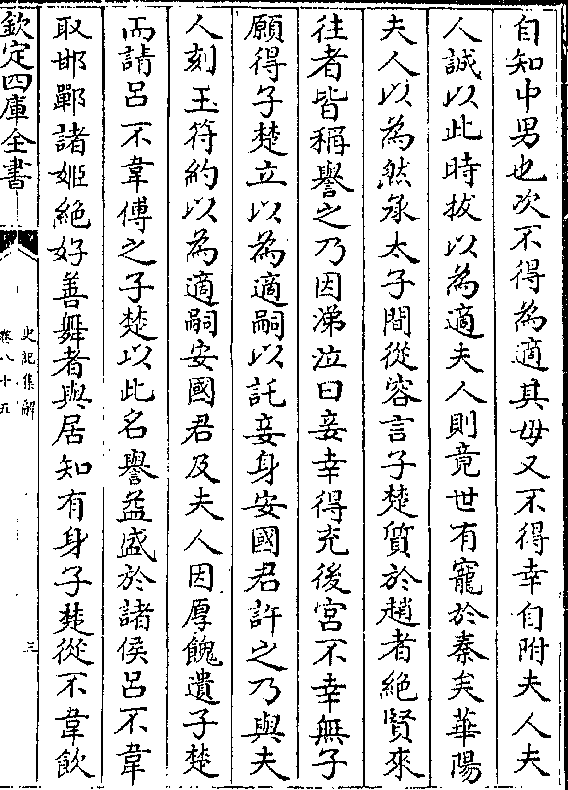 自知中男也次不得為適其母又不得幸自附夫人夫
人誠以此時拔以為適夫人則竟世有寵於秦矣華陽
夫人以為然承太子間從容言子楚質於趙者絕賢來
往者皆稱譽之乃因涕泣曰妾幸得充後宫不幸無子
願得子楚立以為適嗣以託妾身安國君許之乃與夫
人刻玉符約以為適嗣安國君及夫人因厚餽遺子楚
而請吕不韋傅之子楚以此名譽益盛於諸侯吕不韋
取邯鄲諸姬絕好善舞者與居知有身子楚從不韋飲
欽定四庫全書
史記集解
卷八十五
三